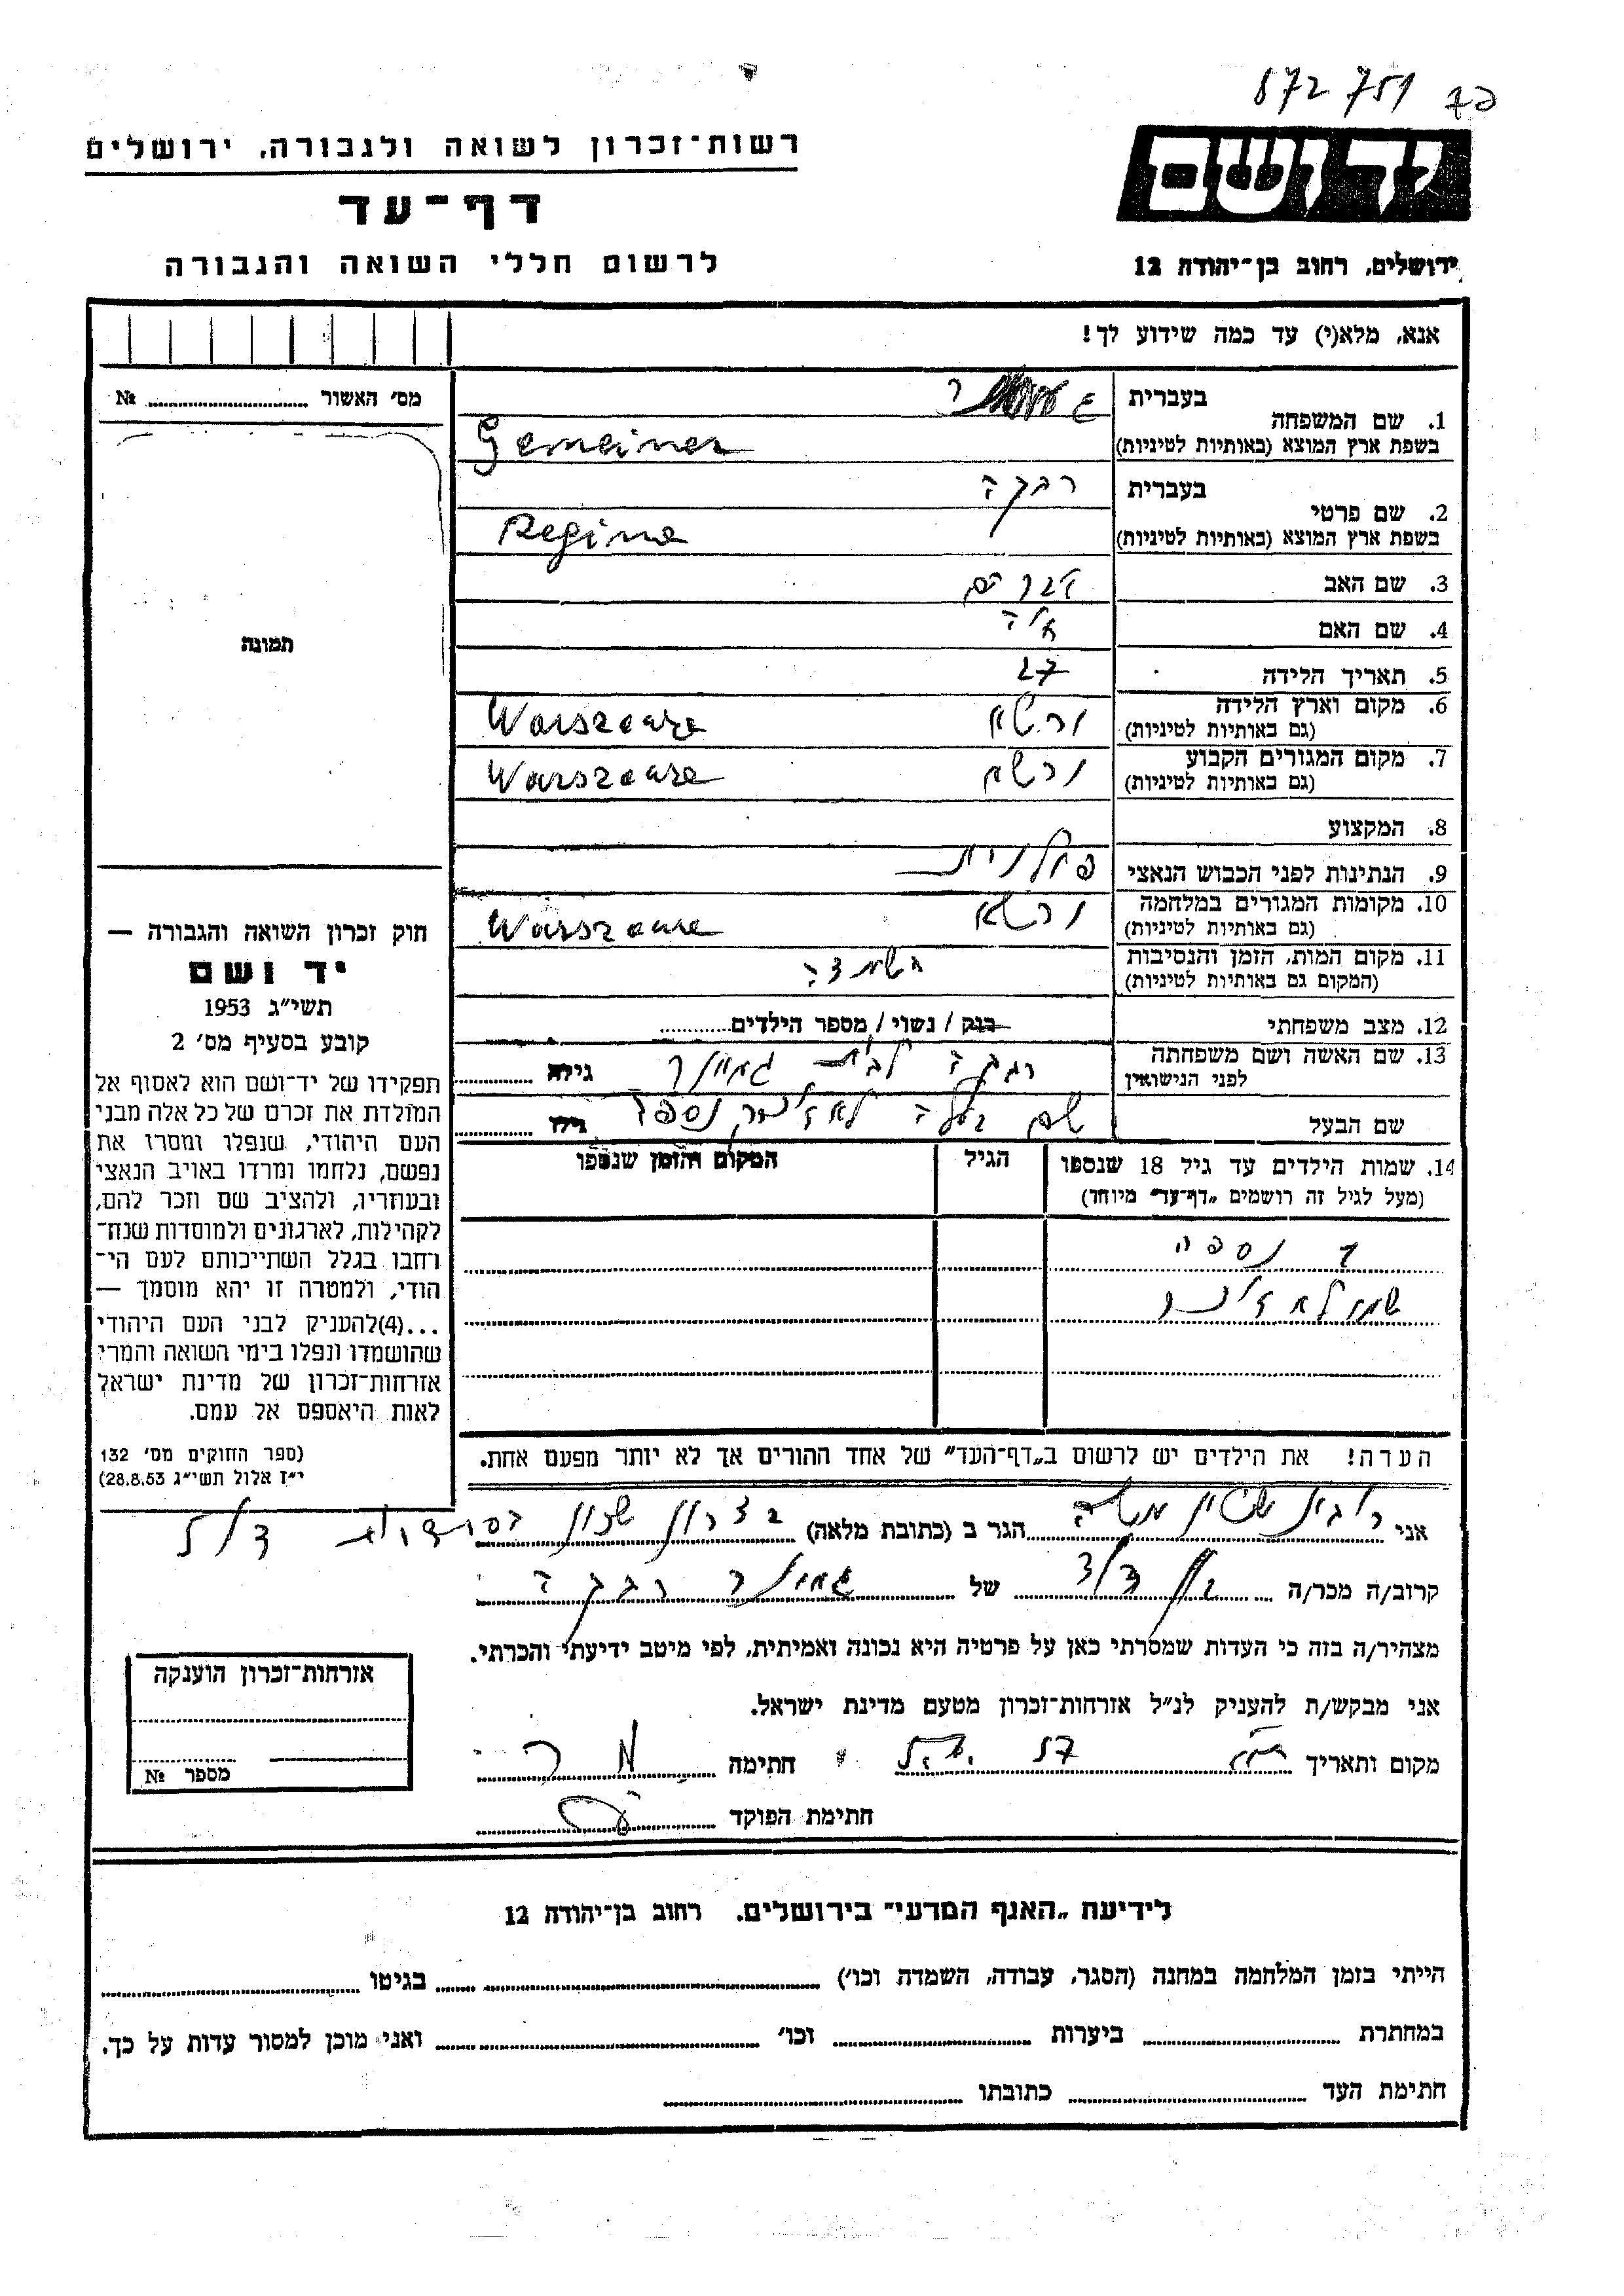 872 751
רשות־זכרון לשואה ולגבורה, ירושלים
דף־עד
לרשום חללי השואה והגבורה
יד ושם
ירושלים, רחוב בן־יהודה 12
אנא, מלא(י) עד כמה שידוע לך!
מס׳ האשור № 
תמונה
חוק זכרון השואה והגבורה —
יד ושם
תשי״ג 1953
קובע בסעיף מס׳ 2
תפקידו של יד־ושם הוא לאסוף אל
המולדת את זכרם של כל אלה מבני
העם היהודי, שנפלו ומסרו את
נפשם, נלחמו ומרדו באויב הנאצי
ובעוזריו, ולהציב שם וזכר להם,
לקהילות, לארגונים ולמוסדות שנח־
רחבו בגלל השתייכותם לעם הי־
הודי, ולמטרה זו יהא מוסמך —
...(4)להעניק לבני העם היהודי
שהושמדו ונפלו בימי השואה והמרי
אזרחות־זכרון של מדינת ישראל
לאות היאספם אל עמם.
(ספר החוקים מס׳ 132
י״ז אלול תשי״ג 28.8.53)
1. שם המשפחה
בעברית
בשפת ארץ המוצא (באותיות לטיניות) Gemeiner
2. שם פרטי
בעברית רבקה
בשפת ארץ המוצא (באותיות לטיניות) Regina
3. שם האב אברהם
4. שם האם
5. תאריך הלידה 27
6. מקום וארץ הלידה (גם באותיות לטיניות) ורשא Warszawa
7. מקום המגורים הקבוע (גם באותיות לטיניות) ורשא Warszawa
8. המקצוע
9. הנתינות לפני הכבוש הנאצי פולנית
10. מקומות המגורים במלחמה (גם באותיות לטיניות) ורשא Warszawa
11. מקום המות, הזמן והנסיבות (המקום גם באותיות לטיניות) השמדה
12. מצב משפחתי רווק / נשוי / מספר הילדים
13. שם האשה ושם משפחתה לפני הנישואין רבקה לבית גמיינר גילה
שם הבעל שם בעלה לא זכור נספה גילו
14. שמות הילדים עד גיל 18 שנספו הגיל המקום והזמן שנספו
(מעל לגיל זה רושמים „דף־עד״ מיוחד)
נספה
שמו לא זכור
הערה! את הילדים יש לרשום ב„דף־העד״ של אחד ההורים אך לא יותר מפעם אחת.
אני רובינשטיין משה הגר ב (כתובת מלאה)
קרוב/ה מכר/ה בן דוד של גמיינר רבקה
מצהיר/ה בזה כי העדות שמסרתי כאן על פרטיה היא נכונה ואמיתית, לפי מיטב ידיעתי והכרתי.
אני מבקש/ת להעניק לנ״ל אזרחות־זכרון מטעם מדינת ישראל.
מקום ותאריך חתימה
חתימת הפוקד
אזרחות־זכרון הוענקה
מספר №
לידיעת „האגף המדעי״ בירושלים, רחוב בן־יהודה 12
הייתי בזמן המלחמה במחנה (הסגר, עבודה, השמדה וכו׳) בגיטו
במחתרת ביערות וכו׳ ואני מוכן למסור עדות על כך.
חתימת העד כתובתו